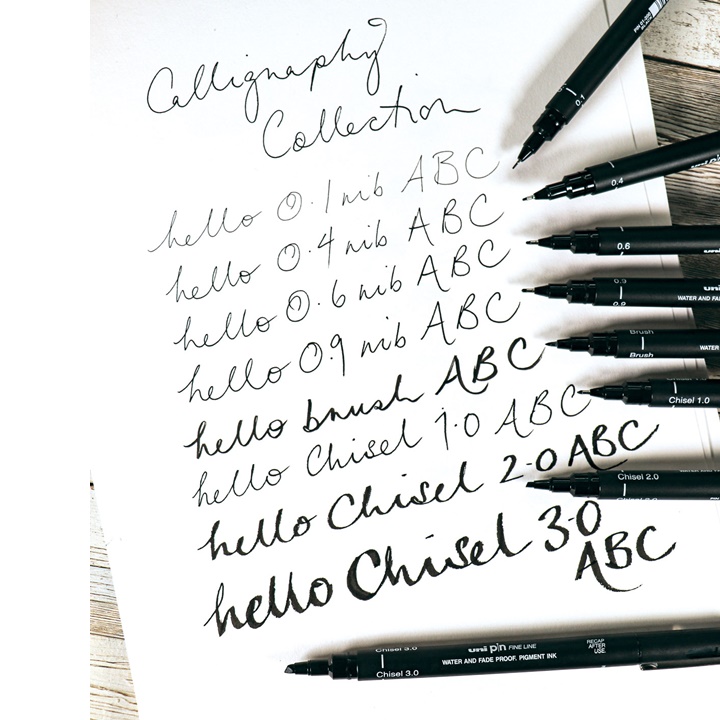 Calligraphy
Collection
hello 0.1 nib ABC
hello 0.4 nib ABC
hello 0.6 nib ABC
hello 0.9 nib ABC
hello brush ABC
hello Chisel 1.0 ABC
hello Chisel 2.0 ABC
hello Chisel 3.0
ABC
0.1
0.4
0.6
0.9
0.9
WATER AND FA
Brush
Brush
WATER
Chisel 1.0
Chisel 2.0
Chisel 3.0
Chisel 3.0
uni pin FINE LINE
WATER AND FADE PROOF. PIGMENT INK
RECAP
AFTER
USE.